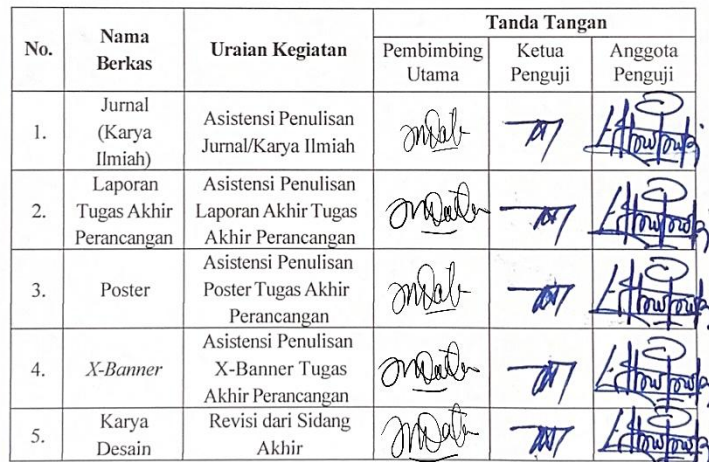 No.
Nama
Berkas
Uraian Kegiatan
Tanda Tangan
Pembimbing
Utama
Ketua
Penguji
Anggota
Penguji
1.
Jurnal
(Karya
Ilmiah)
Asistensi Penulisan
Jurnal/Karya Ilmiah
2.
Laporan
Tugas Akhir
Perancangan
Asistensi Penulisan
Laporan Akhir Tugas
Akhir Perancangan
3.
Poster
Asistensi Penulisan
Poster Tugas Akhir
Perancangan
4.
X-Banner
Asistensi Penulisan
X-Banner Tugas
Akhir Perancangan
5.
Karya
Desain
Revisi dari Sidang
Akhir